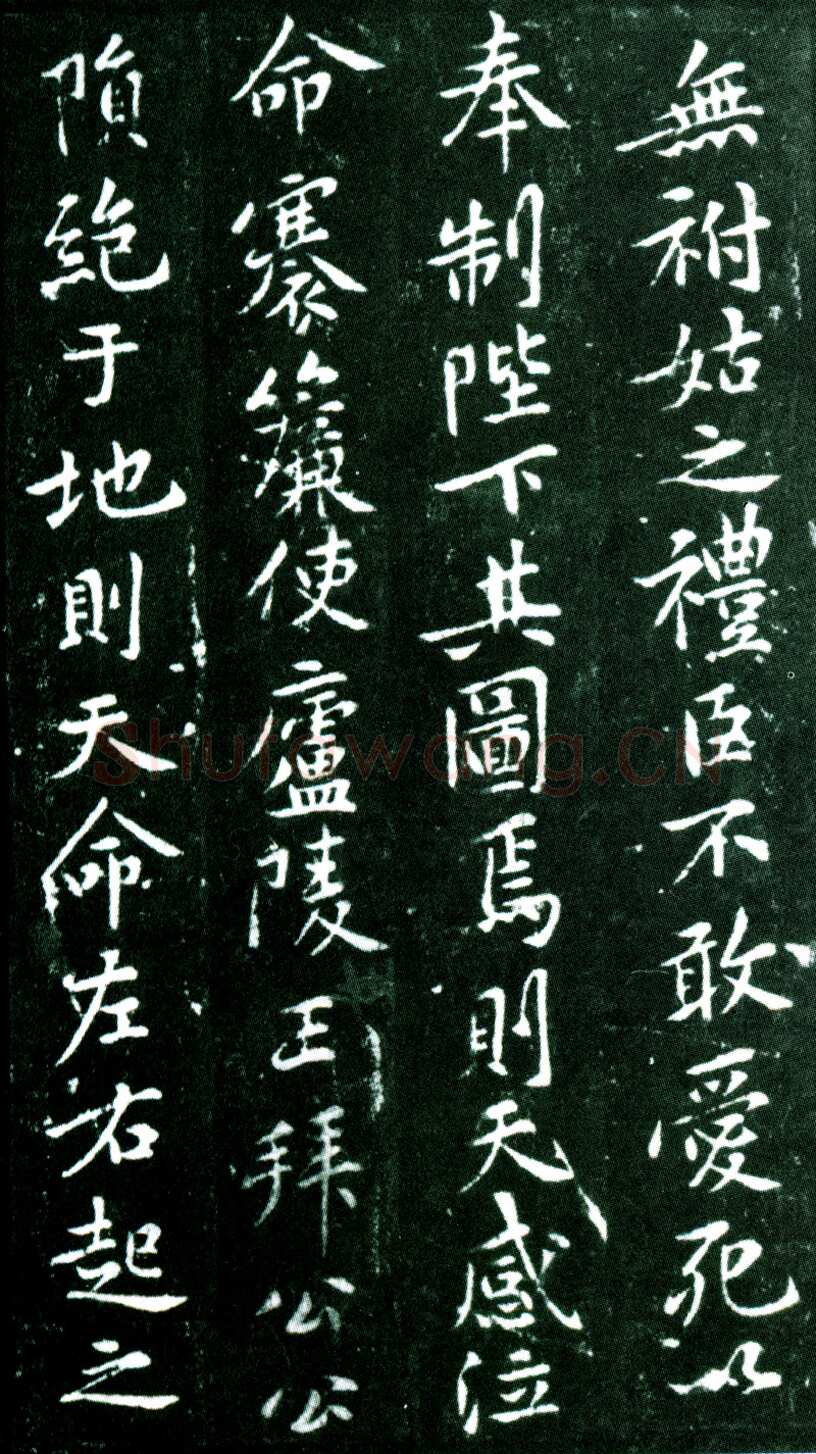 無祔姑之禮臣不敢愛死以
奉制陛下其圖焉則天感泣
命褰簾使廬陵王拜公公
隕絕于地則天命左右起之
Shufawang.CN